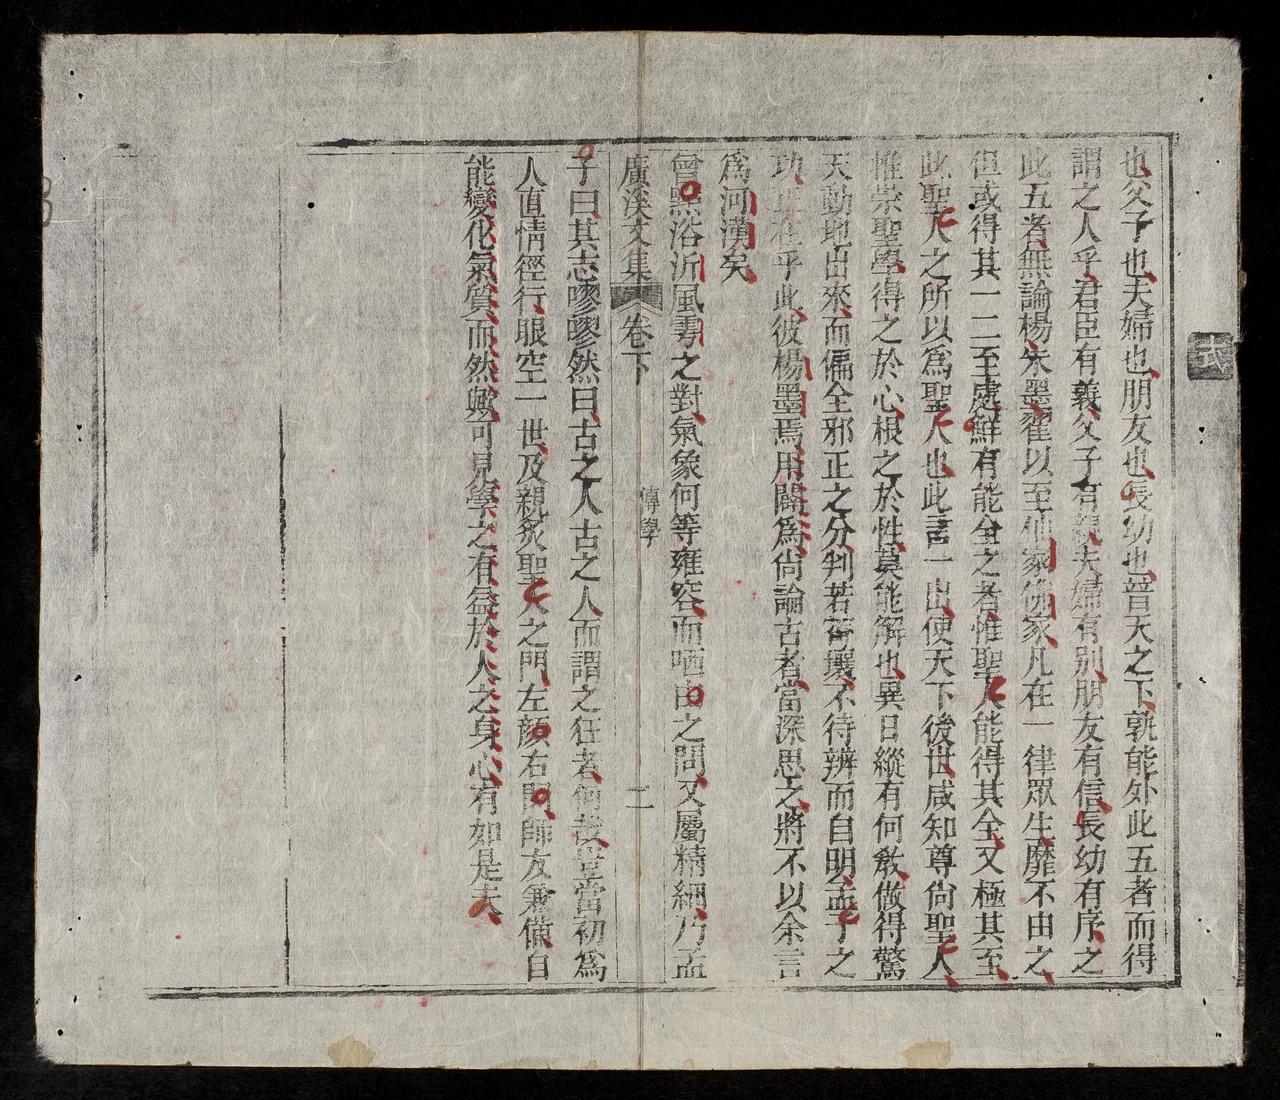 也父子也夫婦也朋友也長幼也普天之下孰能外此五者而得
謂之人乎君臣有義父子有親夫婦有別朋友有信長幼有序之
此五者無論楊朱墨翟以至仙家佛家凡在一律眾生靡不由之
但或得其一二至處鮮有能全之者惟聖人能得其全又極其至
此聖人之所以為聖人也此言一出使天下後世咸知尊尚聖人
惟崇聖學得之於心根之於性莫能解也異日縱有何教做得驚
天動地出來而偏全邪正之分判若霄壤不待辨而自明孟子之
功正在乎此彼楊墨焉用闢為尚論古者當深思之將不以余言
為河漢矣
曾點浴沂風雩之對氣象何等雍容而哂由之問又屬精細乃孟
廣溪文集 卷下 傳學 二
子曰其志嘐嘐然曰古之人古之人而謂之狂者何哉豈當初為
人直情徑行眼空一世及親炙聖人之門左顏右閔師友兼備自
能變化氣質而然歟可見學之有益於人之身心有如是夫